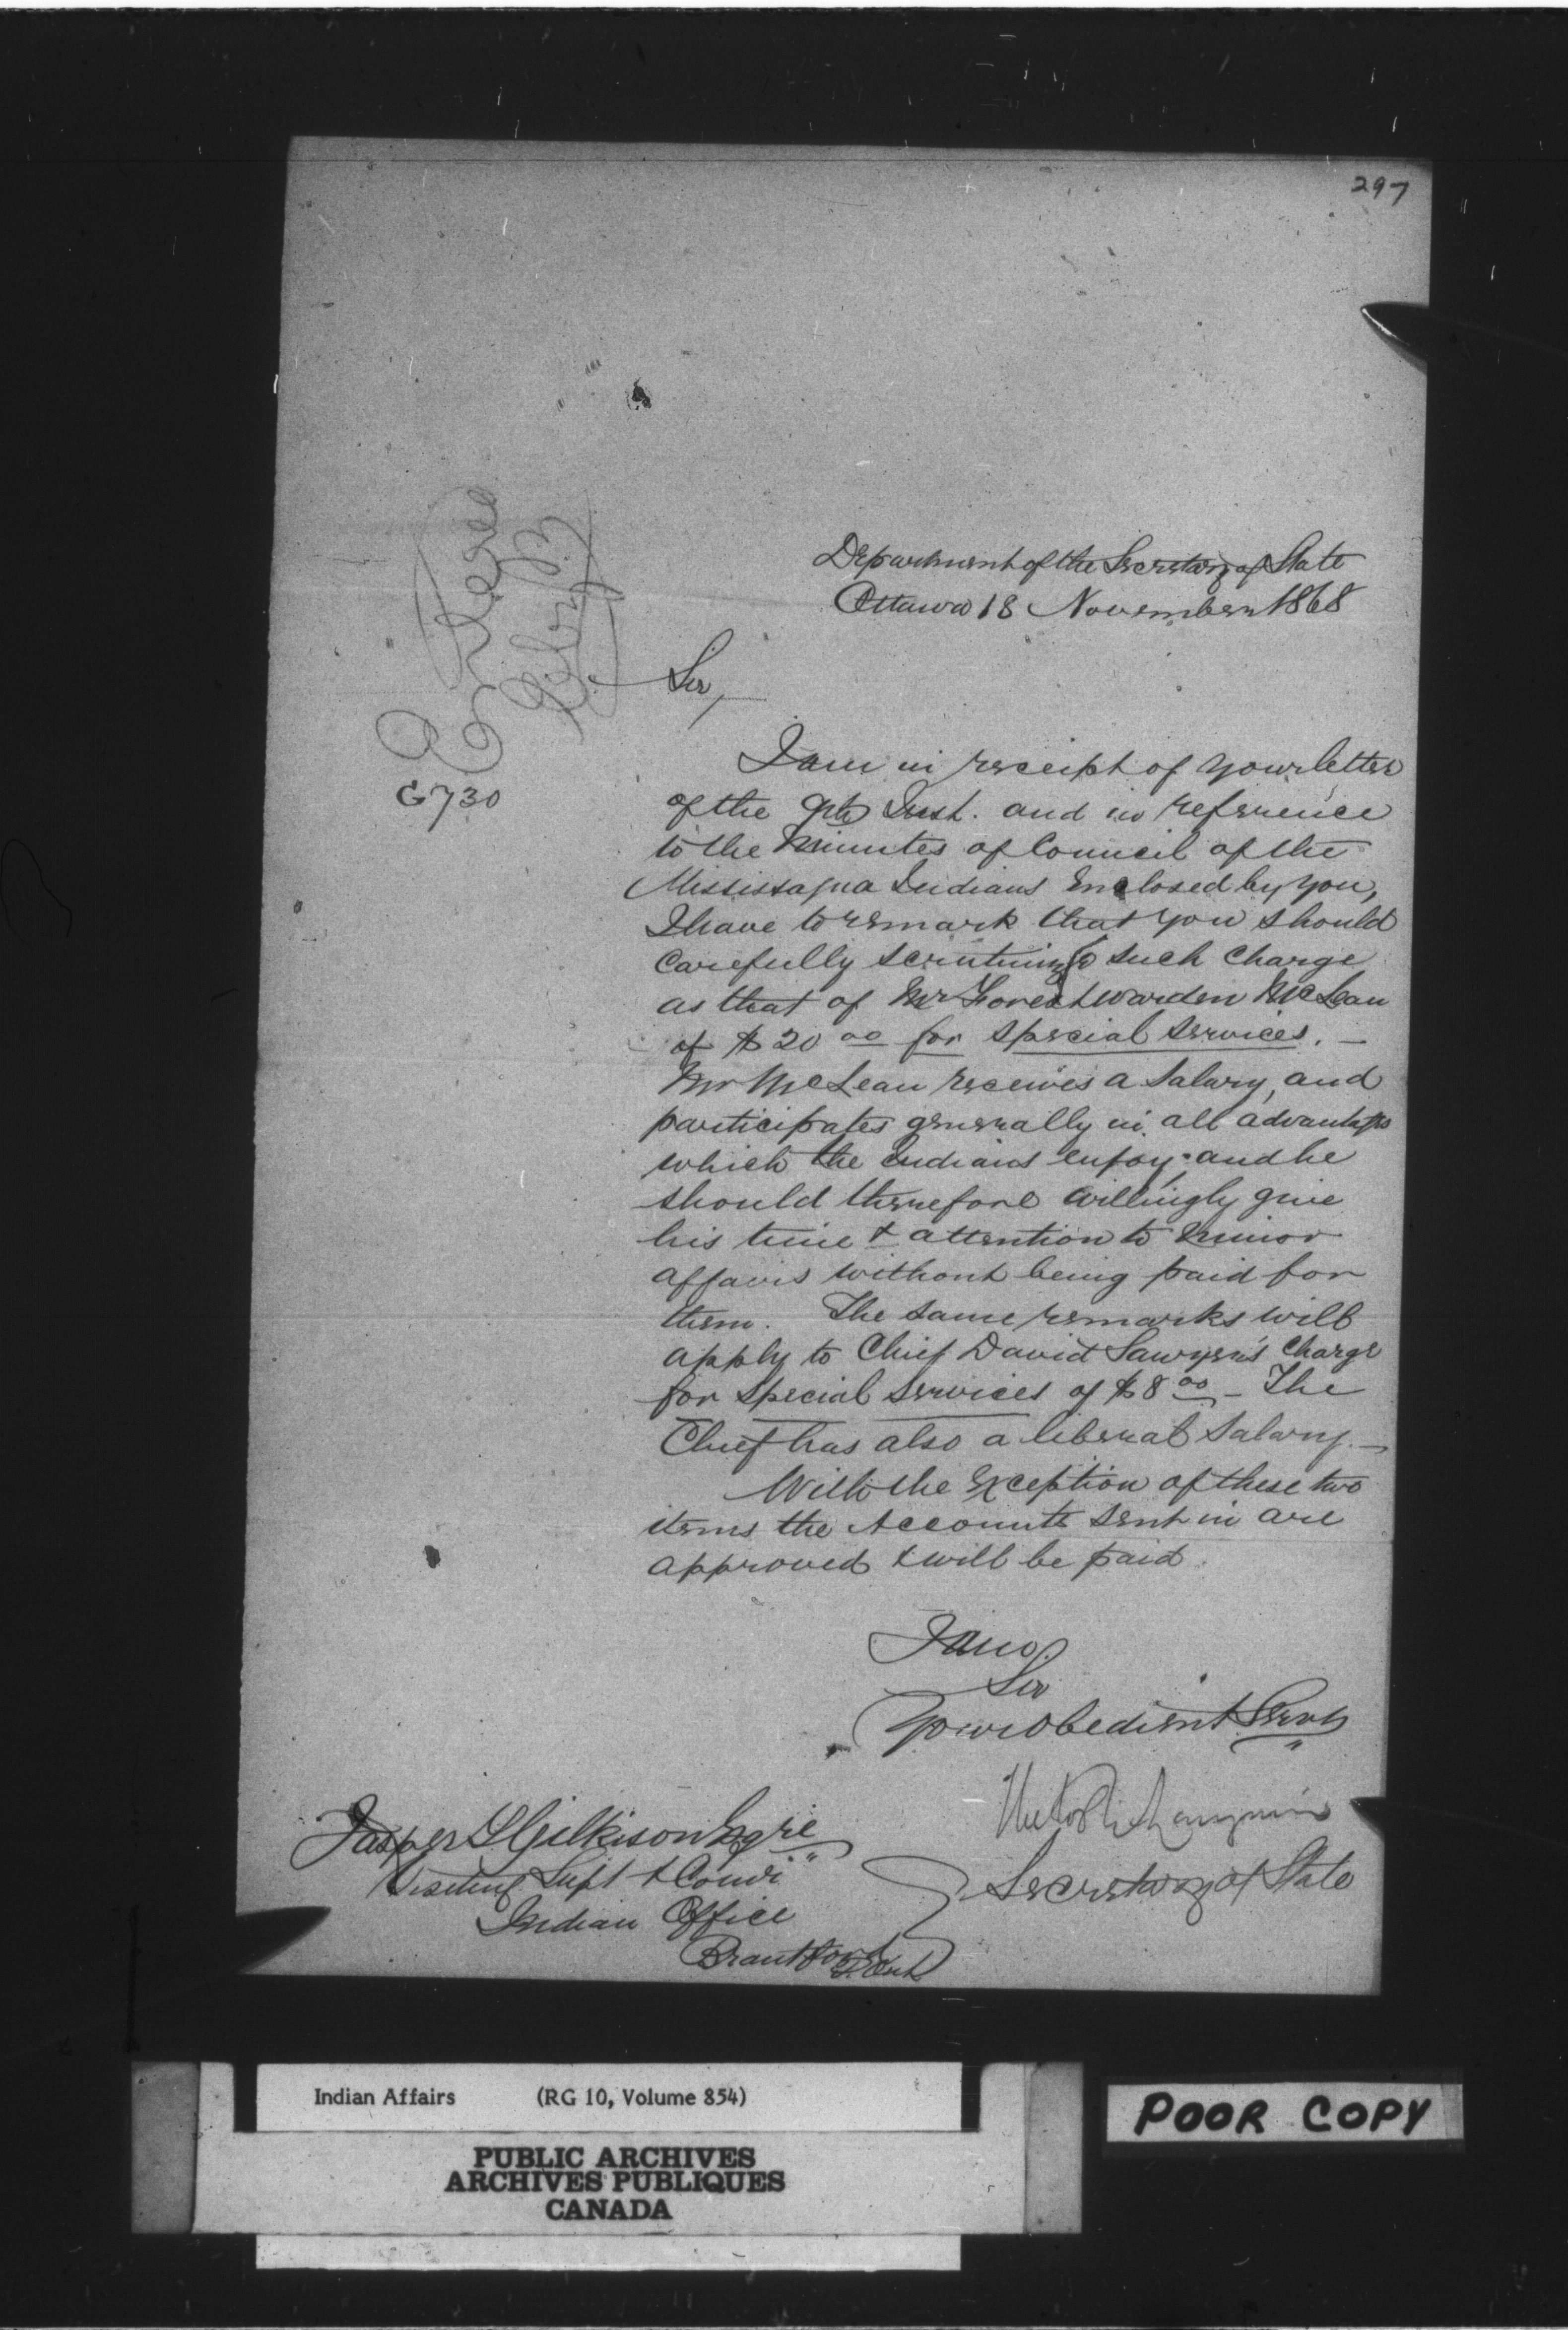 297
Department of the Secretary of State
Ottawa 18 November 1868
Sir,
G730
I am in receipt of your letter
of the 9th Inst. and in reference
to the Minutes of Council of the
Mississagua Indians Enclosed by you,
I have to remark that you should
Carefully scrutinize such Charge
as that of Mr Forest warden McLean
of $20 00 for special services. —
Mr McLean receives a Salary, and
participates generally in all advantages
which the Indians enjoy; and he
should therefore willingly give
his time & attention to Minor
affairs without being paid for
them. The same remarks will
apply to Chief David Sawyer's Charge
for special services of $8 00 – The
Chief has also a liberal Salary. —
With the Exception of these two
items the Accounts sent in are
approved & will be paid.
I am
Sir
Your obedient Servt
Hector L. Langevin
Secretary of State
Jasper T Gilkison Esqre
Visiting Supt & Comr
Indian Office
Brantford Ont
Indian Affairs (RG 10, Volume 854)
PUBLIC ARCHIVES
ARCHIVES PUBLIQUES
CANADA
POOR COPY